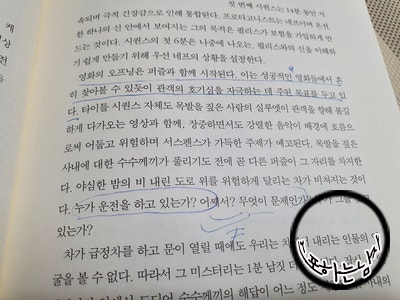 첫 번째 시퀀스는 14분 동안 지
속되며 극적 긴장감으로 인해 통합된다. 프로타고니스트는 네프이며 온전
한 하나의 신 안에서 보여지는 그의 목적은 필리스가 보험을 가입하게 만
드는 것이다. 시퀀스의 첫 6분은 나중에 나오는, 필리스와의 신을 이해하
기 쉽게 만들기 위해 우선 네프의 상황을 설정한다.
영화의 오프닝은 퍼즐과 함께 시작된다. 이는 성공적인 영화들에서 흔
히 찾아볼 수 있듯이 관객의 호기심을 자극하는 데 주된 목표를 두고 있
다. 타이틀 시퀀스 자체도 목발을 짚은 사람의 실루엣이 관객을 향해 불길
하게 다가오는 영상과 함께, 장중하면서도 강렬한 음악이 배경에 흐름으
로써 어둡고 위험하며 서스펜스가 가득한 주제가 예고된다. 목발을 짚은
사내에 대한 수수께끼가 풀리기도 전에 곧 다른 퍼즐이 그 자리를 차지한
다. 야심한 밤의 비 내린 도로 위를 위험하게 달리는 차가 비쳐지는 것이
다. 누가 운전을 하고 있는가? 어째서? 무엇이 문제인가
있는가?
차가 급정차를 하고 문이 열릴 때에도 우리는 내리는 인물의
굴을 볼 수 없다. 따라서 그 미스터리는 1분 남짓 더
수수께끼의 해답이 어느 정도
케
상
전
포와하는남